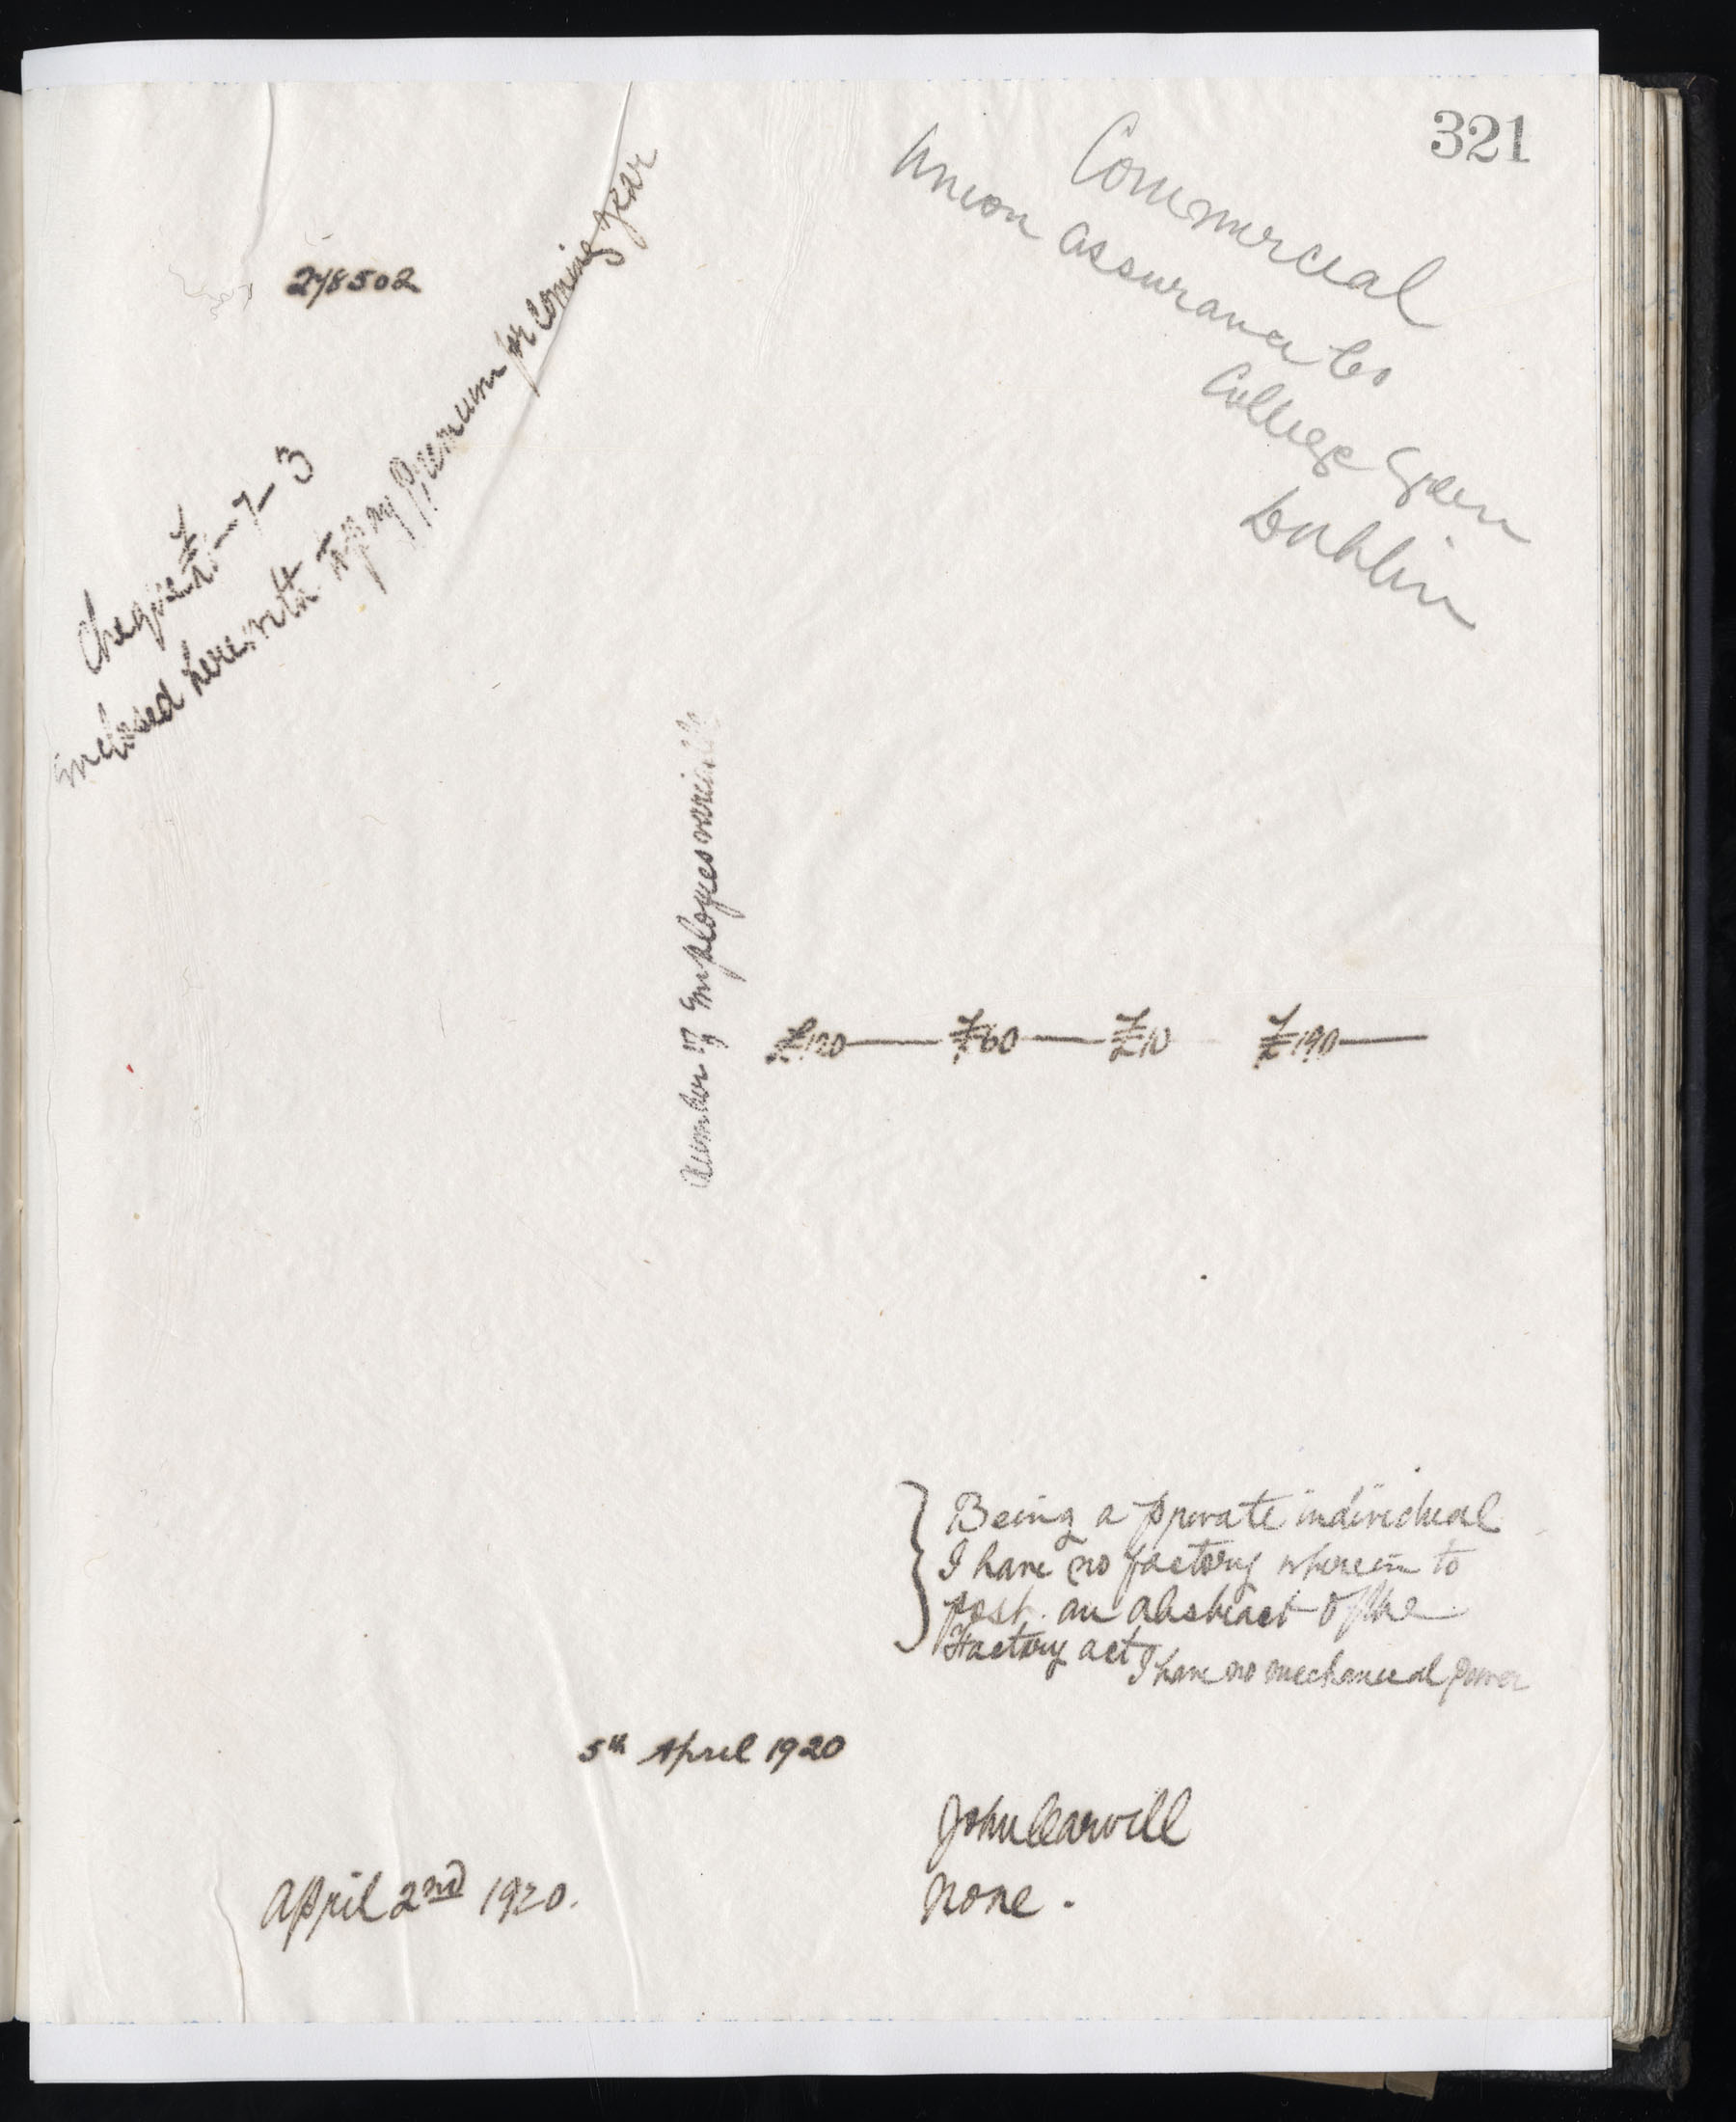 321
Commercial
Union Assurance Co
College Green
Dublin
278502
Cheque £1-7-3
Enclosed herewith to pay Premium for Coming year
Number of Employees variable
£120 — £60 — £10 £190 —
Being a private individual
I have no factory wherein to
post. an abstract of the
Factory act
I have no mechanical power
5th April 1920
John Carvill
April 2nd 1920.
None.